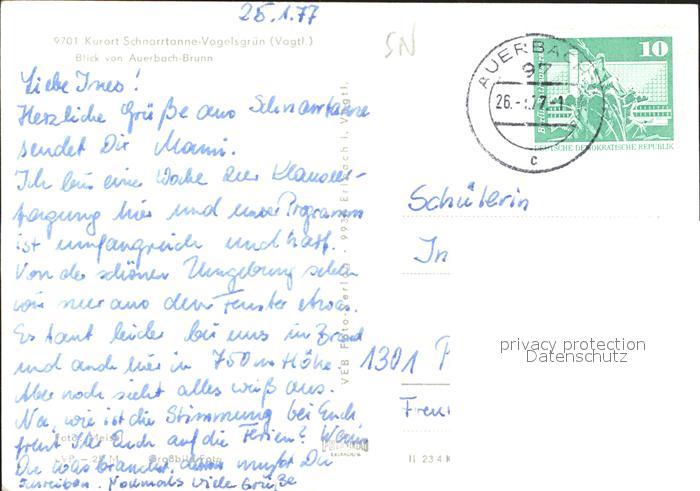 25.1.77
9701 Kurort Schnarrtanne-Vogelsgrün (Vogtl.)
Blick von Auerbach-Brunn
SN
AUERBACH
97
26.-1.77-1
c
10
DEUTSCHE DEMOKRATISCHE REPUBLIK
Liebe Ines!
Herzliche Grüße aus Schnarrtanne
sendet Dir Mami.
Ich bin eine Woche zur Klausur-
tagung hier und unser Programm
ist umfangreich und hart.
Von der schönen Umgebung sehen
wir nur aus dem Fenster etwas.
Es taut leider bei uns in
und auch hier in 750 m Höhe.
Aber noch sieht alles weiß aus.
Na, wie ist die Stimmung bei Euch,
freut Ihr Euch auf die Ferien? Wenn
Du was brauchst, dann mußt Du
schreiben. Nochmals viele Grüße
Foto: Meisel
Großbild-Foto
VEB Foto-Verlag 
Erlbach i. Vogtl.
Schülerin
In
1301
privacy protection
Datenschutz
II 23 4 K